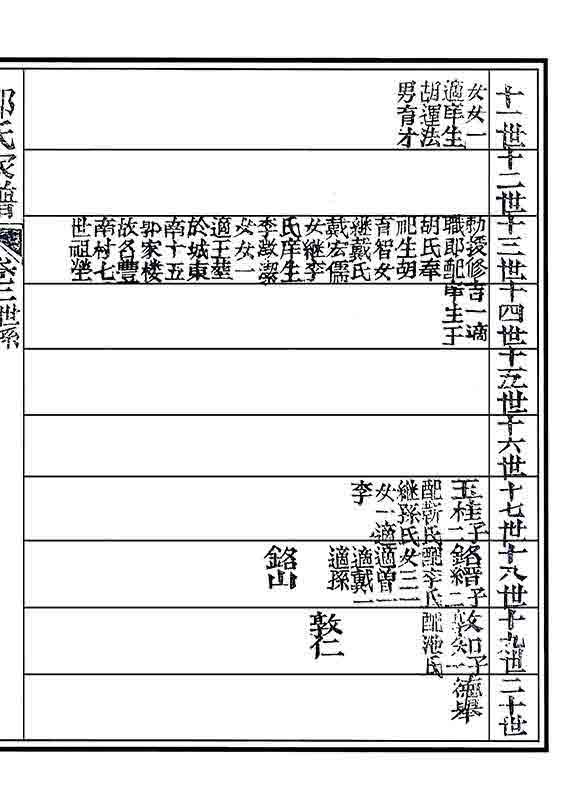 十一世
十二世
十三世
十四世
十五世
十六世
十七世
十八世
十九世
二十世
女女一
適庠生
胡運法
男育才
勅授修
職郎配
胡氏奉
祀生胡
育智女
繼戴氏
戴宏儒
女繼李
氏庠生
李澂潔
女女一
適王莹
於城東
南十五
郭家楼
故名豐
南村七
世祖塋
吉一適
庠生于
玉桂子
配靳氏
繼孫氏
女一適
李
銘縉子二
配李氏
女三一
適曾一
適戴一
適孫
銘山
配池氏
敦仁
德舉
卷二世系